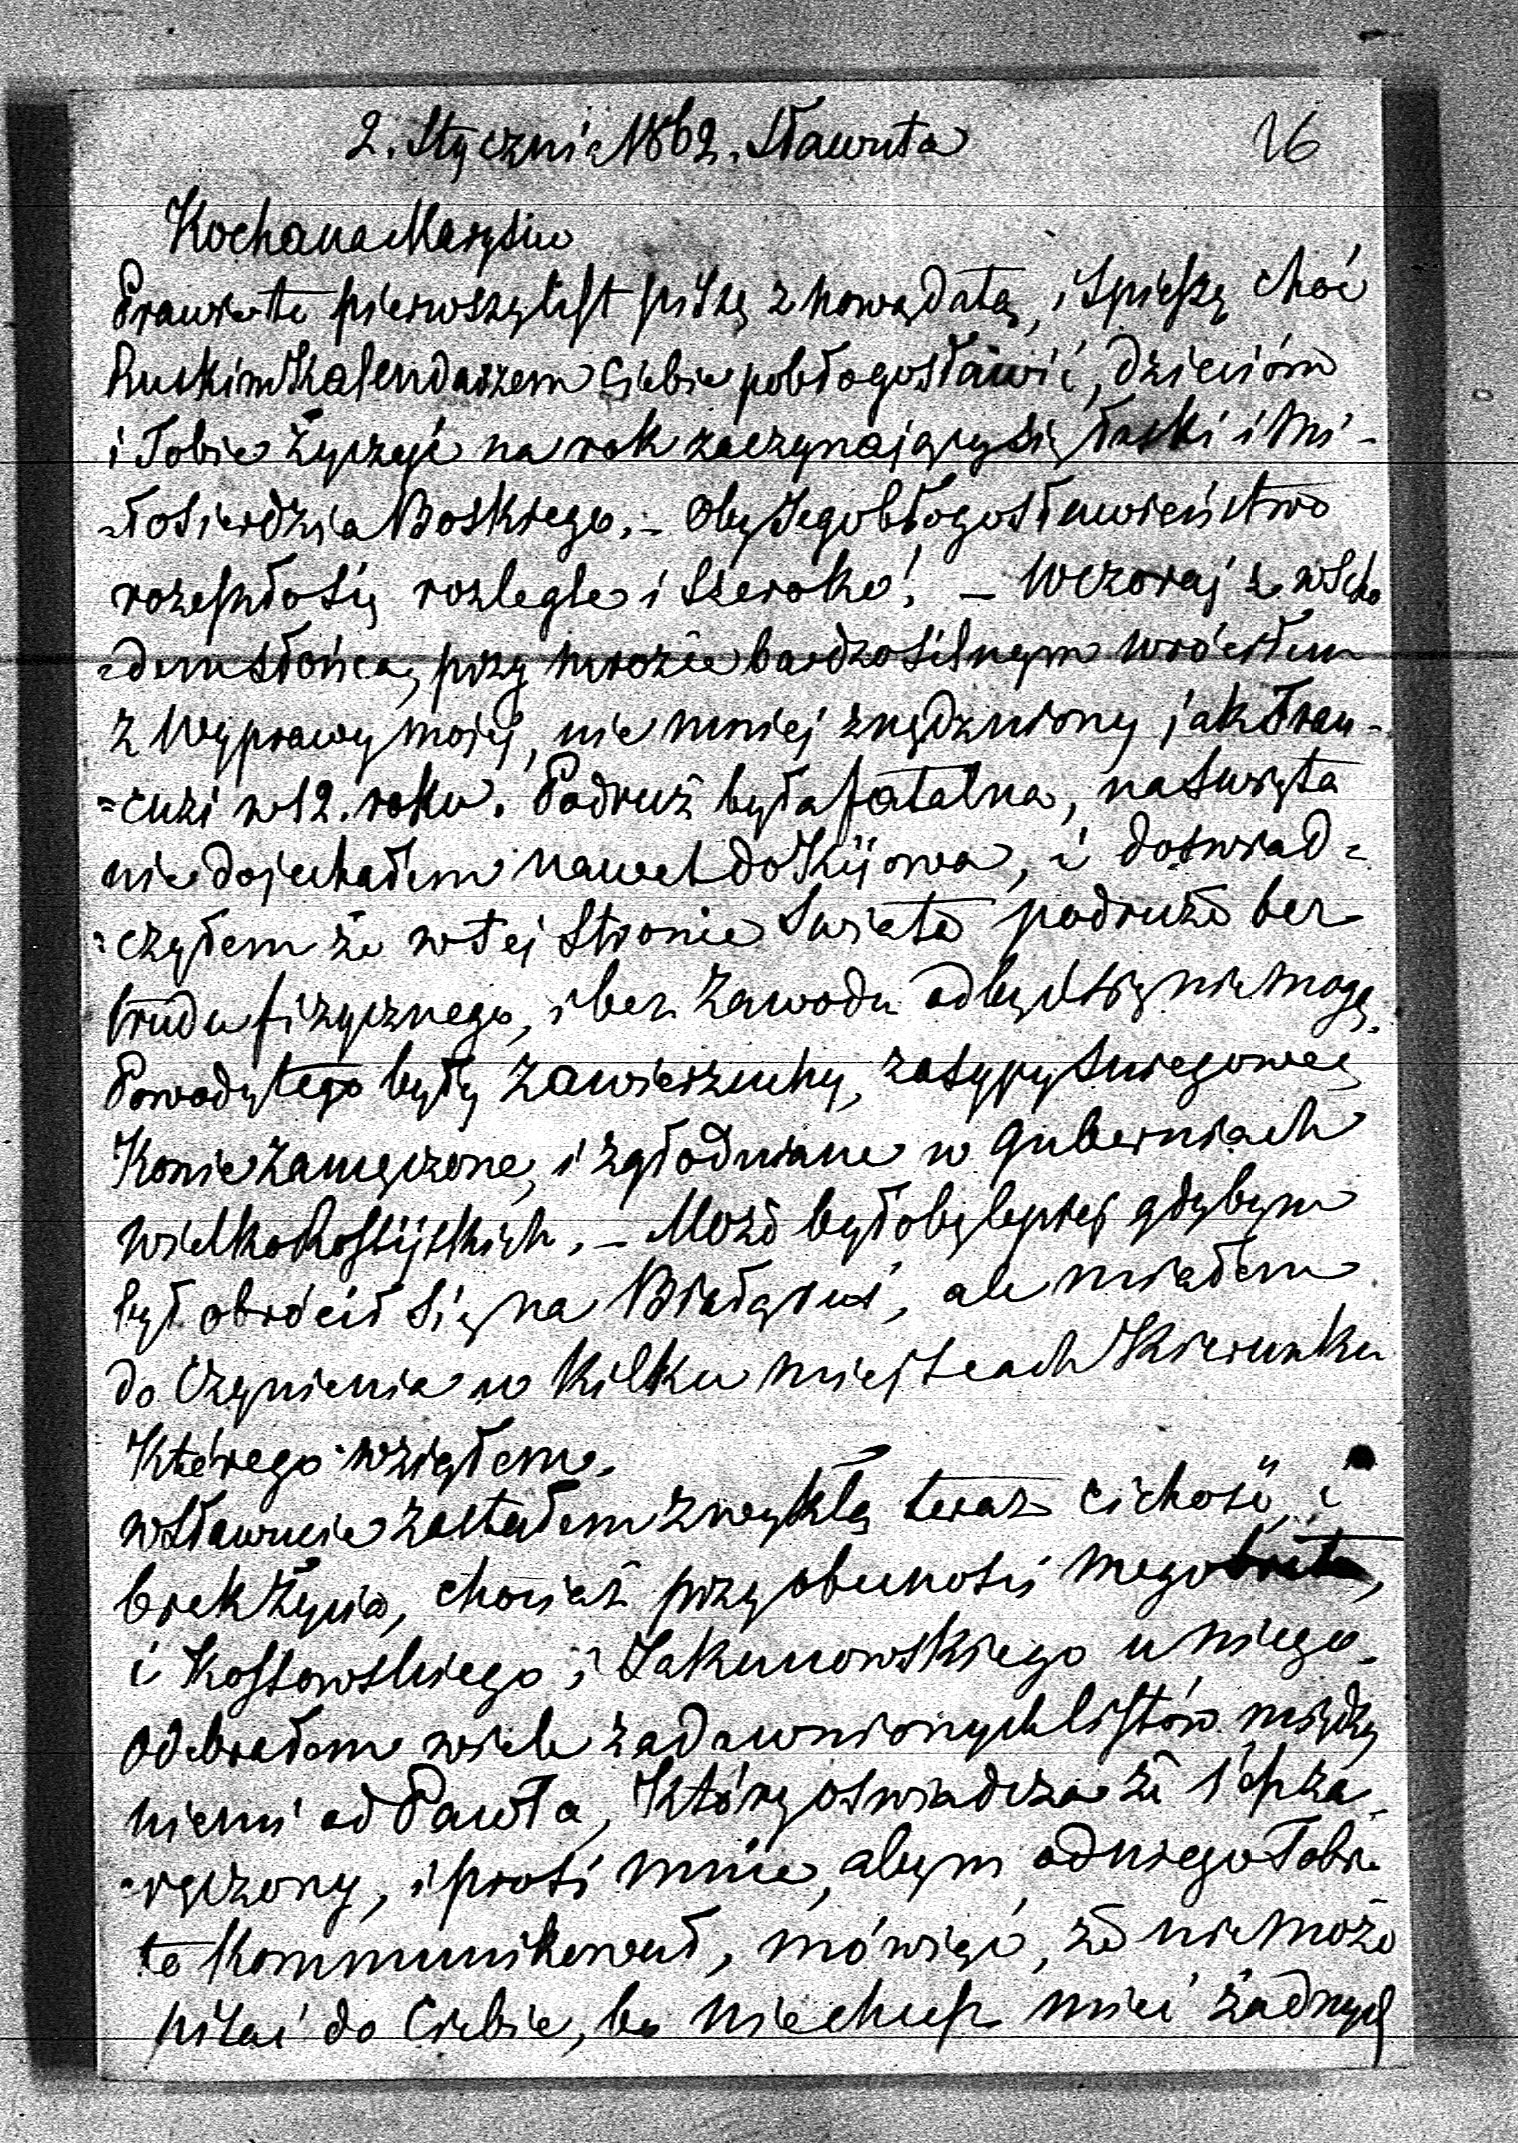 2. Stycznia 1862. Sławuta
26
Kochana Marysiu
Prawie to pierwszy list piszę z nową datą, i spieszę choć
Ruskim Kalendarzem Ciebie pobłogosławić, dzieciom
i Tobie życzyć na rok zaczynający się łaski i Mi-
-łosierdzia Boskiego. – Oby Jego błogosławieństwo
rozeszło się rozlegle i szeroko! – Wczoraj z wscho
-dem słońca, przy mrozie bardzo silnym wróciłem
z Wyprawy mojej, nie mniej znędzniony jak Fran-
=cuzi w 12. roku. Podruż była fatalna, na Swięta
nie dojechałem nawet do Kijowa, i doswiad-
=czyłem że w tej stronie Swiata podruże bez
trudu fizycznego, i bez zawodu odbyć się nie mogą.
Powody tego były zawieruchy, zasypy sniegowe,
Konie zamęczone, i zgłodniane w guberniach
wielko Rossyjskich. – Może byłoby lepiej gdybym
był obrócił się na Białąruś, ale miałem
do Czynienia w kilku miejscach Kierunku
Którego wziąłem.
w Sławucie zastałem zwykłą teraz cichość, i
brak życia, chociaż przy obecnosci mego
i Kossowskiego i Jakunowskiego u niego.
Odebrałem wiele zadawnionych listów między
niemi od Pawła, Który oswiadcza że jest za-
-ręczony, i prosi mnie, abym od niego Tobie
to Kommunikował, mówiąc, że nie może
pisać do Ciebie, bo nie chcesz mieć żadnych